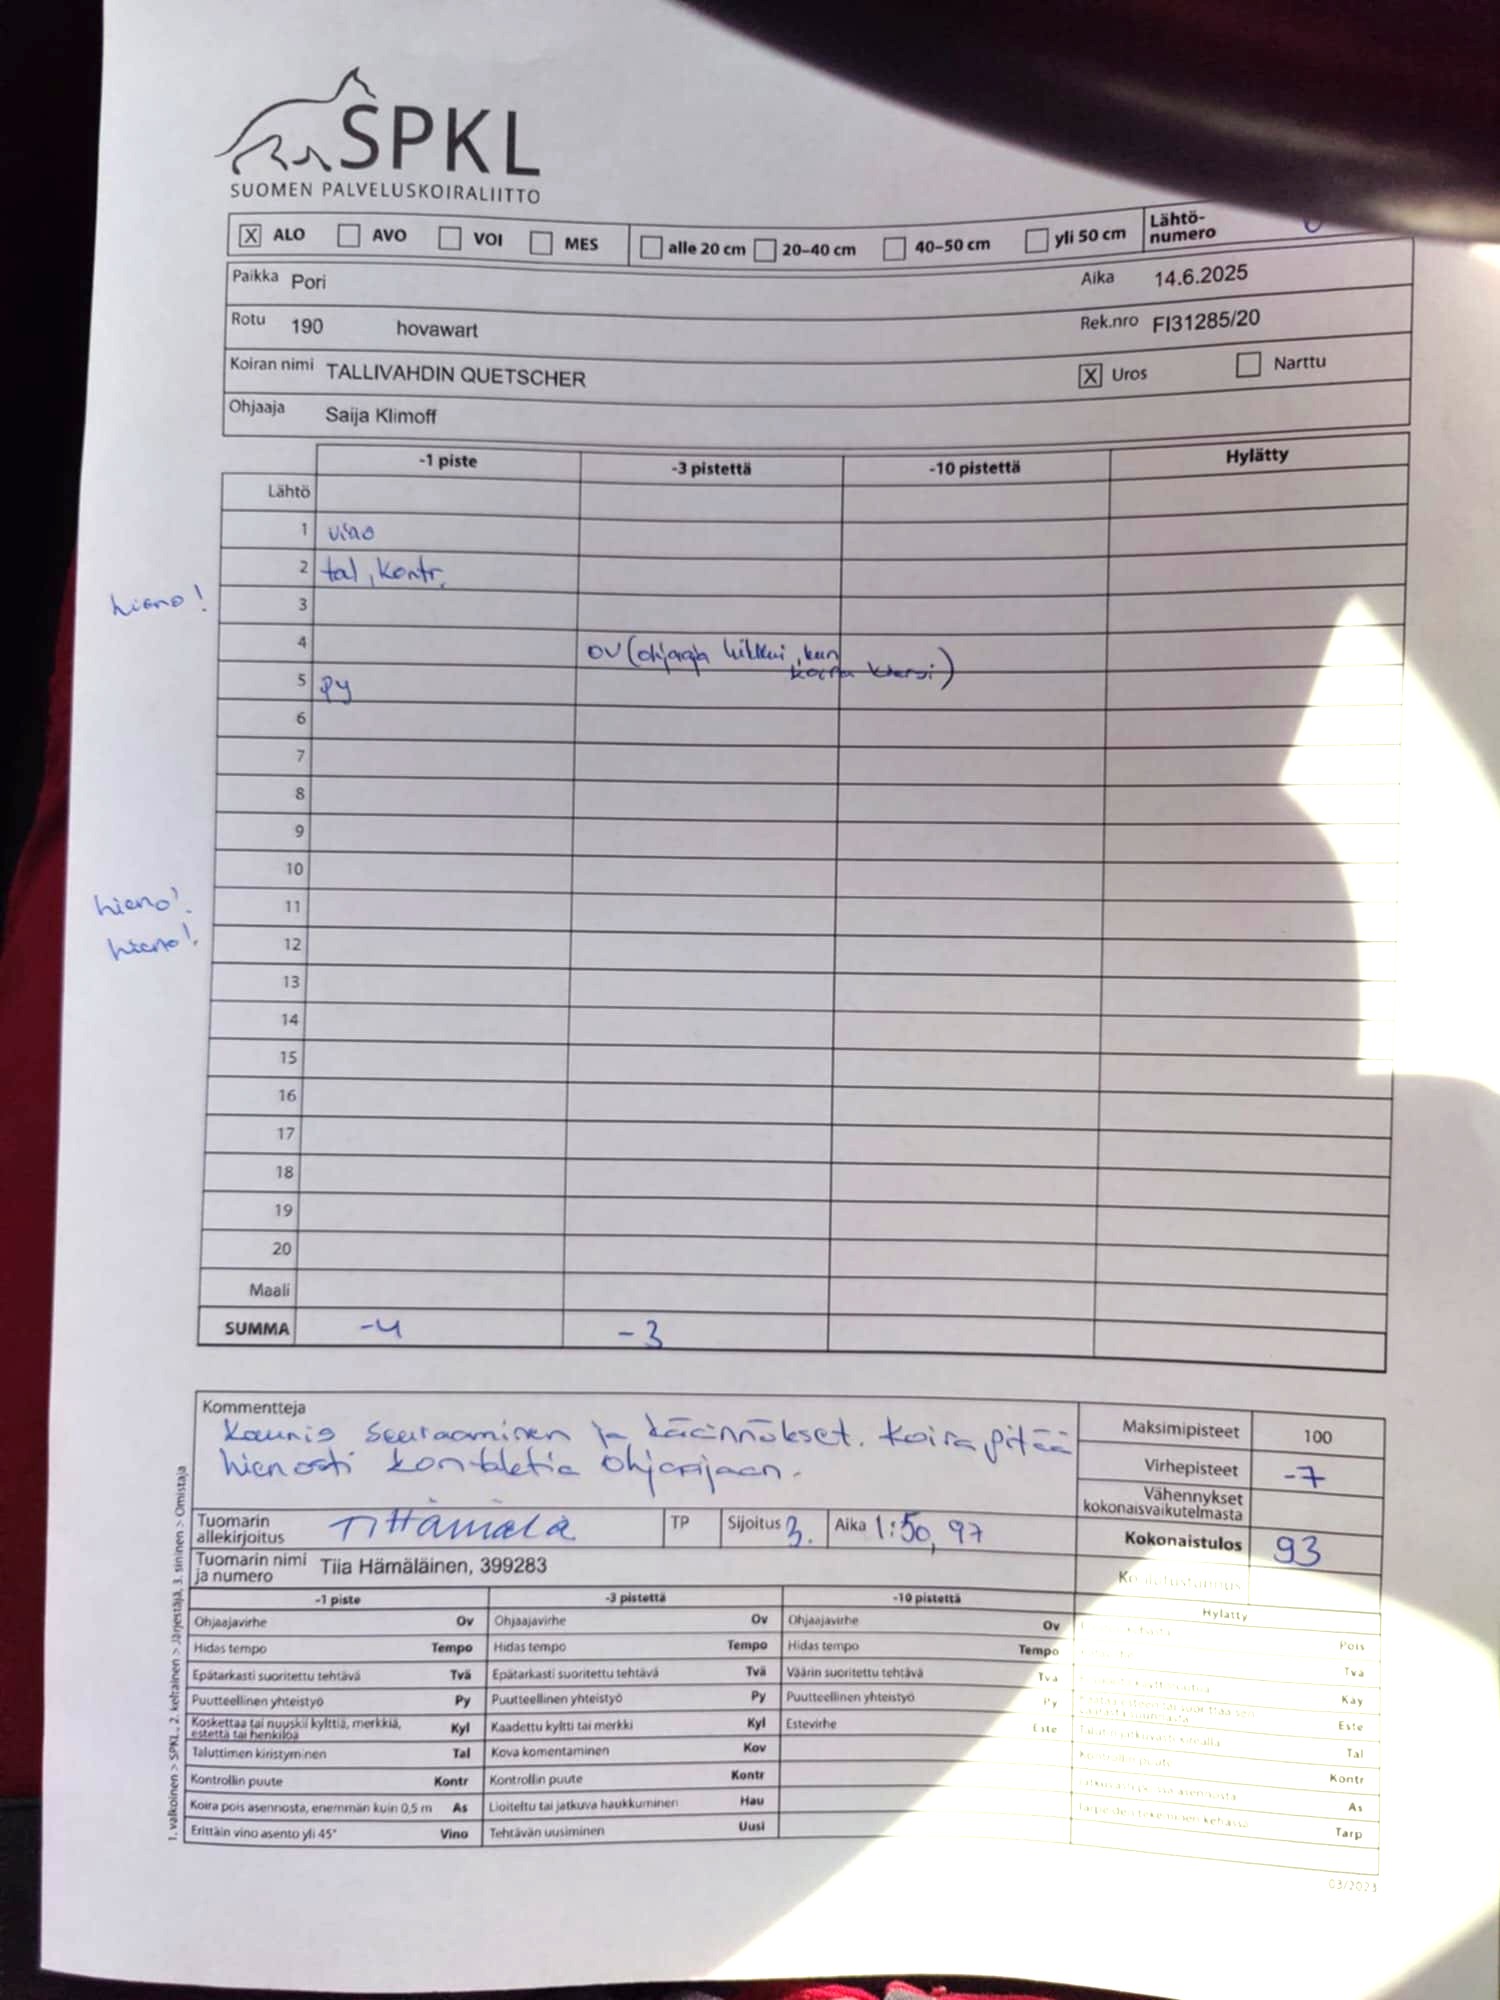 SPKL
SUOMEN PALVELUSKOIRALIITTO
X ALO AVO VOI MES alle 20 cm 20–40 cm 40–50 cm yli 50 cm Lähtö-
numero
Paikka Pori Aika 14.6.2025
Rotu 190 hovawart Rek.nro FI31285/20
Koiran nimi TALLIVAHDIN QUETSCHER X Uros Narttu
Ohjaaja Saija Klimoff
-1 piste -3 pistettä -10 pistettä Hylätty
Lähtö
1 vino
2 tal, kontr.
hieno! 3
4 ov (ohjaaja liikkui, kun
koira kiersi)
5 py
6
7
8
9
10
hieno! 11
hieno! 12
13
14
15
16
17
18
19
20
Maali
SUMMA -4 -3
Kommentteja
Kaunis seuraaminen ja käännökset. Koira pitää
hienosti kontaktia ohjaajaan.
Maksimipisteet 100
Virhepisteet -7
Vähennykset
kokonaisvaikutelmasta
Kokonaistulos 93
Tuomarin
allekirjoitus THämälä TP Sijoitus 3. Aika 1:50,97
Tuomarin nimi
ja numero Tiia Hämäläinen, 399283
-1 piste -3 pistettä -10 pistettä Hylätty
Ohjaajavirhe Ov Ohjaajavirhe Ov Ohjaajavirhe Ov Pois
Hidas tempo Tempo Hidas tempo Tempo Hidas tempo Tempo Tvä
Epätarkasti suoritettu tehtävä Tvä Epätarkasti suoritettu tehtävä Tvä Väärin suoritettu tehtävä Tvä Käy
Puutteellinen yhteistyö Py Puutteellinen yhteistyö Py Puutteellinen yhteistyö Py Este
Koskettaa tai nuuskii kylttiä, merkkiä,
estettä tai henkilöä Kyl Kaadettu kyltti tai merkki Kyl Estevirhe Este Tal
Taluttimen kiristyminen Tal Kova komentaminen Kov Kontr
Kontrollin puute Kontr Kontrollin puute Kontr As
Koira pois asennosta, enemmän kuin 0,5 m As Lioiteltu tai jatkuva haukkuminen Hau Tarp
Erittäin vino asento yli 45° Vino Tehtävän uusiminen Uusi
03/2023
1. valkoinen > SPKL, 2. keltainen > Järjestäjä, 3. sininen > Omistaja